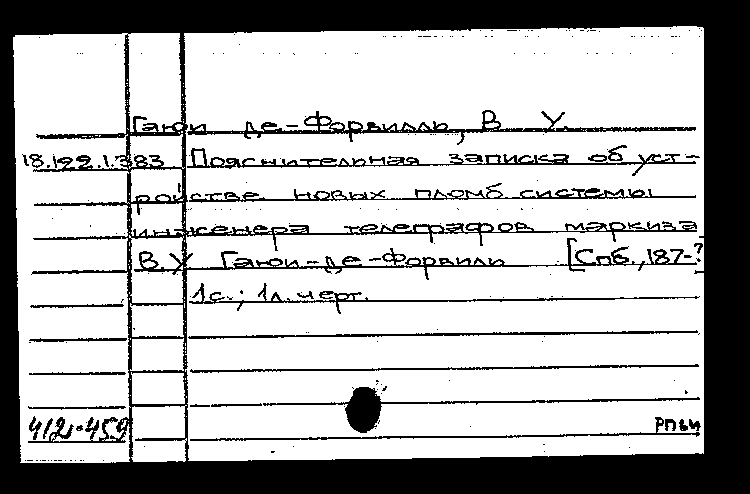 Гаюи де-Форвилль, В У.
18.199.1.383 Пояснительная записка об уст-
ройстве новых пломб системы
инженера телеграфов маркиза
В.У Гаюи-де-Форвиль [Спб., 187-?
1с.; 1л. черт.